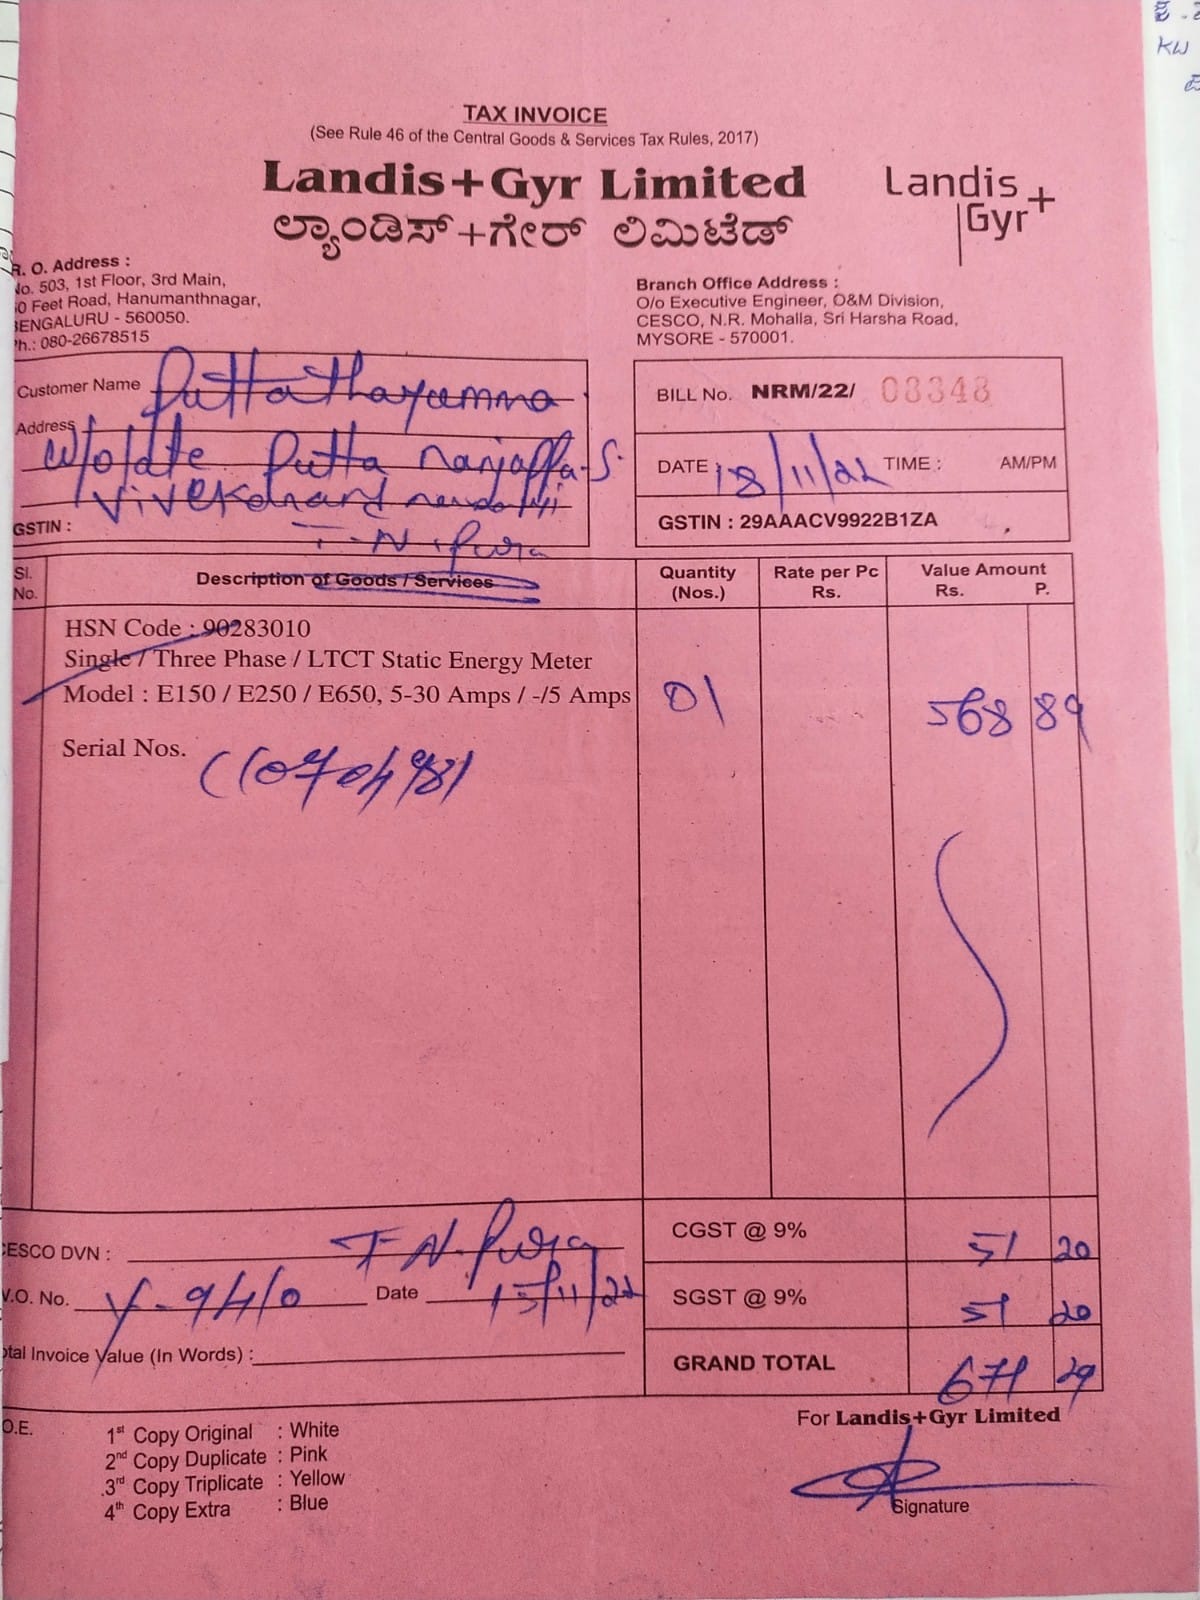 TAX INVOICE
(See Rule 46 of the Central Goods & Services Tax Rules, 2017)
Landis+Gyr Limited
ಲ್ಯಾಂಡಿಸ್+ಗೇರ್ ಲಿಮಿಟೆಡ್
Landis
Gyr+
R. O. Address :
No. 503, 1st Floor, 3rd Main,
0 Feet Road, Hanumanthnagar,
BENGALURU - 560050.
Ph.: 080-26678515
Branch Office Address :
O/o Executive Engineer, O&M Division,
CESCO, N.R. Mohalla, Sri Harsha Road,
MYSORE - 570001.
Customer Name Puttathayamma
Address
W/o late Putta nanjappa.S.
GSTIN :
T-N-pura
BILL No. NRM/22/ 03348
DATE 18/11/22 TIME : AM/PM
GSTIN : 29AAACV9922B1ZA
Sl. No. Description of Goods / Services Quantity (Nos.) Rate per Pc Rs. Value Amount Rs. P.
HSN Code : 90283010
Single / Three Phase / LTCT Static Energy Meter
Model : E150 / E250 / E650, 5-30 Amps / -/5 Amps 01 568 89
Serial Nos.
CESCO DVN : T-N-Pura
CGST @ 9% 51 20
W.O. No. Y-9410 Date 15/11/22
SGST @ 9% 51 20
otal Invoice Value (In Words) :
GRAND TOTAL 671 29
O.E.
1st Copy Original : White
2nd Copy Duplicate : Pink
3rd Copy Triplicate : Yellow
4th Copy Extra : Blue
For Landis+Gyr Limited
Signature